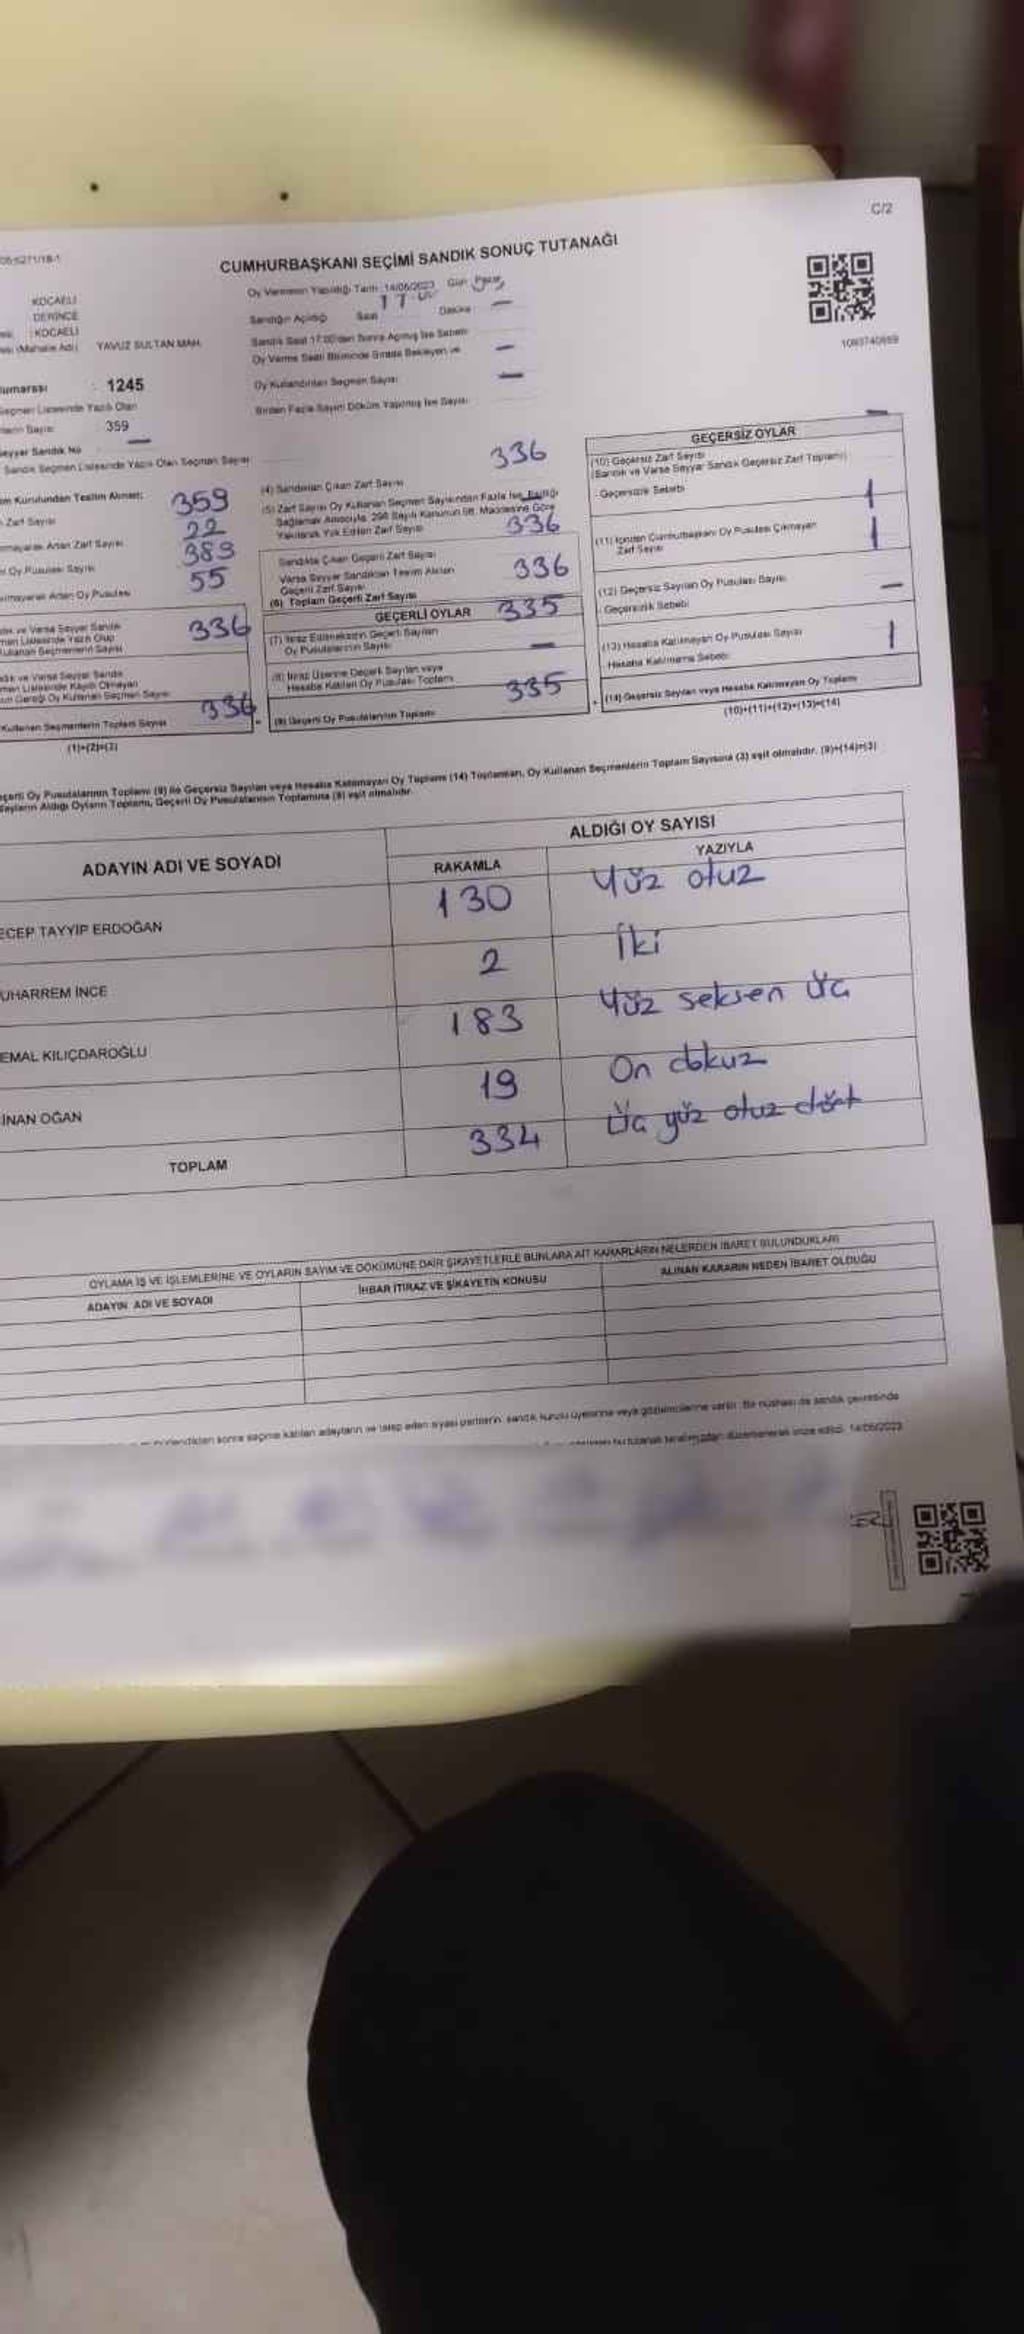 C/2
CUMHURBAŞKANI SEÇİMİ SANDIK SONUÇ TUTANAĞI
Oy Vermenin Yapıldığı Tarih :14/05/2023 Gün Pazar
KOCAELİ
DERİNCE
KOCAELİ
(Mahalle Adı) YAVUZ SULTAN MAH.
Sandığın Açıldığı Saat 17:00 Dakika —
Sandık Saat 17:00'den Sonra Açılmış İse Sebebi
Oy Verme Saati Bitiminde Sırada Bekleyen ve —
Oy Kullandırılan Seçmen Sayısı —
Birden Fazla Sayım Döküm Yapılmış İse Sayısı
umarası : 1245
Seçmen Listesinde Yazılı Olan
Sayısı 359
Seyyar Sandık No —
Sandık Seçmen Listesinde Yazılı Olan Seçmen Sayısı
m Kurulundan Teslim Alınan: 359
Zarf Sayısı 22
Artan Zarf Sayısı 383
Oy Pusulası Sayısı 55
Artan Oy Pusulası
ve Varsa Seyyar Sandık
Listesinde Yazılı Olup 336
Kullanan Seçmenlerin Sayısı
ve Varsa Seyyar Sandık
Listesinde Kayıtlı Olmayan
Gereği Oy Kullanan Seçmen Sayısı
Kullanan Seçmenlerin Toplam Sayısı 336
(1)+(2)=(3)
(4) Sandıktan Çıkan Zarf Sayısı 336
(5) Zarf Sayısı Oy Kullanan Seçmen Sayısından Fazla İse Eşitliği —
Sağlamak Amacıyla, 298 Sayılı Kanunun 98. Maddesine Göre
Yakılarak Yok Edilen Zarf Sayısı 336
Sandıkta Çıkan Geçerli Zarf Sayısı
Varsa Seyyar Sandıktan Teslim Alınan
Geçerli Zarf Sayısı 336
(6) Toplam Geçerli Zarf Sayısı
GEÇERLİ OYLAR 335
(7) İtiraz Edilmeksizin Geçerli Sayılan
Oy Pusulalarının Sayısı —
(8) İtiraz Üzerine Geçerli Sayılan veya
Hesaba Katılan Oy Pusulası Toplamı 335
(9) Geçerli Oy Pusulalarının Toplamı
1093740669
GEÇERSİZ OYLAR —
(10) Geçersiz Zarf Sayısı
(Sandık ve Varsa Seyyar Sandık Geçersiz Zarf Toplamı)
- Geçersizlik Sebebi 1
(11) İçinden Cumhurbaşkanı Oy Pusulası Çıkmayan 1
Zarf Sayısı
(12) Geçersiz Sayılan Oy Pusulası Sayısı —
- Geçersizlik Sebebi
(13) Hesaba Katılmayan Oy Pusulası Sayısı 1
Hesaba Katılmama Sebebi
(14) Geçersiz Sayılan veya Hesaba Katılmayan Oy Toplamı
(10)+(11)+(12)+(13)=(14)
Geçerli Oy Pusulalarının Toplamı (9) ile Geçersiz Sayılan veya Hesaba Katılmayan Oy Toplamı (14) Toplamları, Oy Kullanan Seçmenlerin Toplam Sayısına (3) eşit olmalıdır. (9)+(14)=(3)
Adayların Aldığı Oyların Toplamı, Geçerli Oy Pusulalarının Toplamına (9) eşit olmalıdır.
ADAYIN ADI VE SOYADI
ALDIĞI OY SAYISI
RAKAMLA YAZIYLA
ECEP TAYYİP ERDOĞAN 130 Yüz otuz
UHARREM İNCE 2 İki
EMAL KILIÇDAROĞLU 183 Yüz seksen üç
İNAN OĞAN 19 On dokuz
TOPLAM 334 Üç yüz otuz dört
OYLAMA İŞ VE İŞLEMLERİNE VE OYLARIN SAYIM VE DÖKÜMÜNE DAİR ŞİKAYETLERLE BUNLARA AİT KARARLARIN NELERDEN İBARET BULUNDUKLARI
ADAYIN ADI VE SOYADI İHBAR İTİRAZ VE ŞİKAYETİN KONUSU ALINAN KARARIN NEDEN İBARET OLDUĞU
sonra seçime katılan adayların ve talep eden siyasi partilerin, sandık kurulu üyelerine veya gözlemcilerine verilir. Bir nüshası da sandık çevresinde
bu tutanak tarafımızdan düzenlenerek imza edildi. 14/05/2023